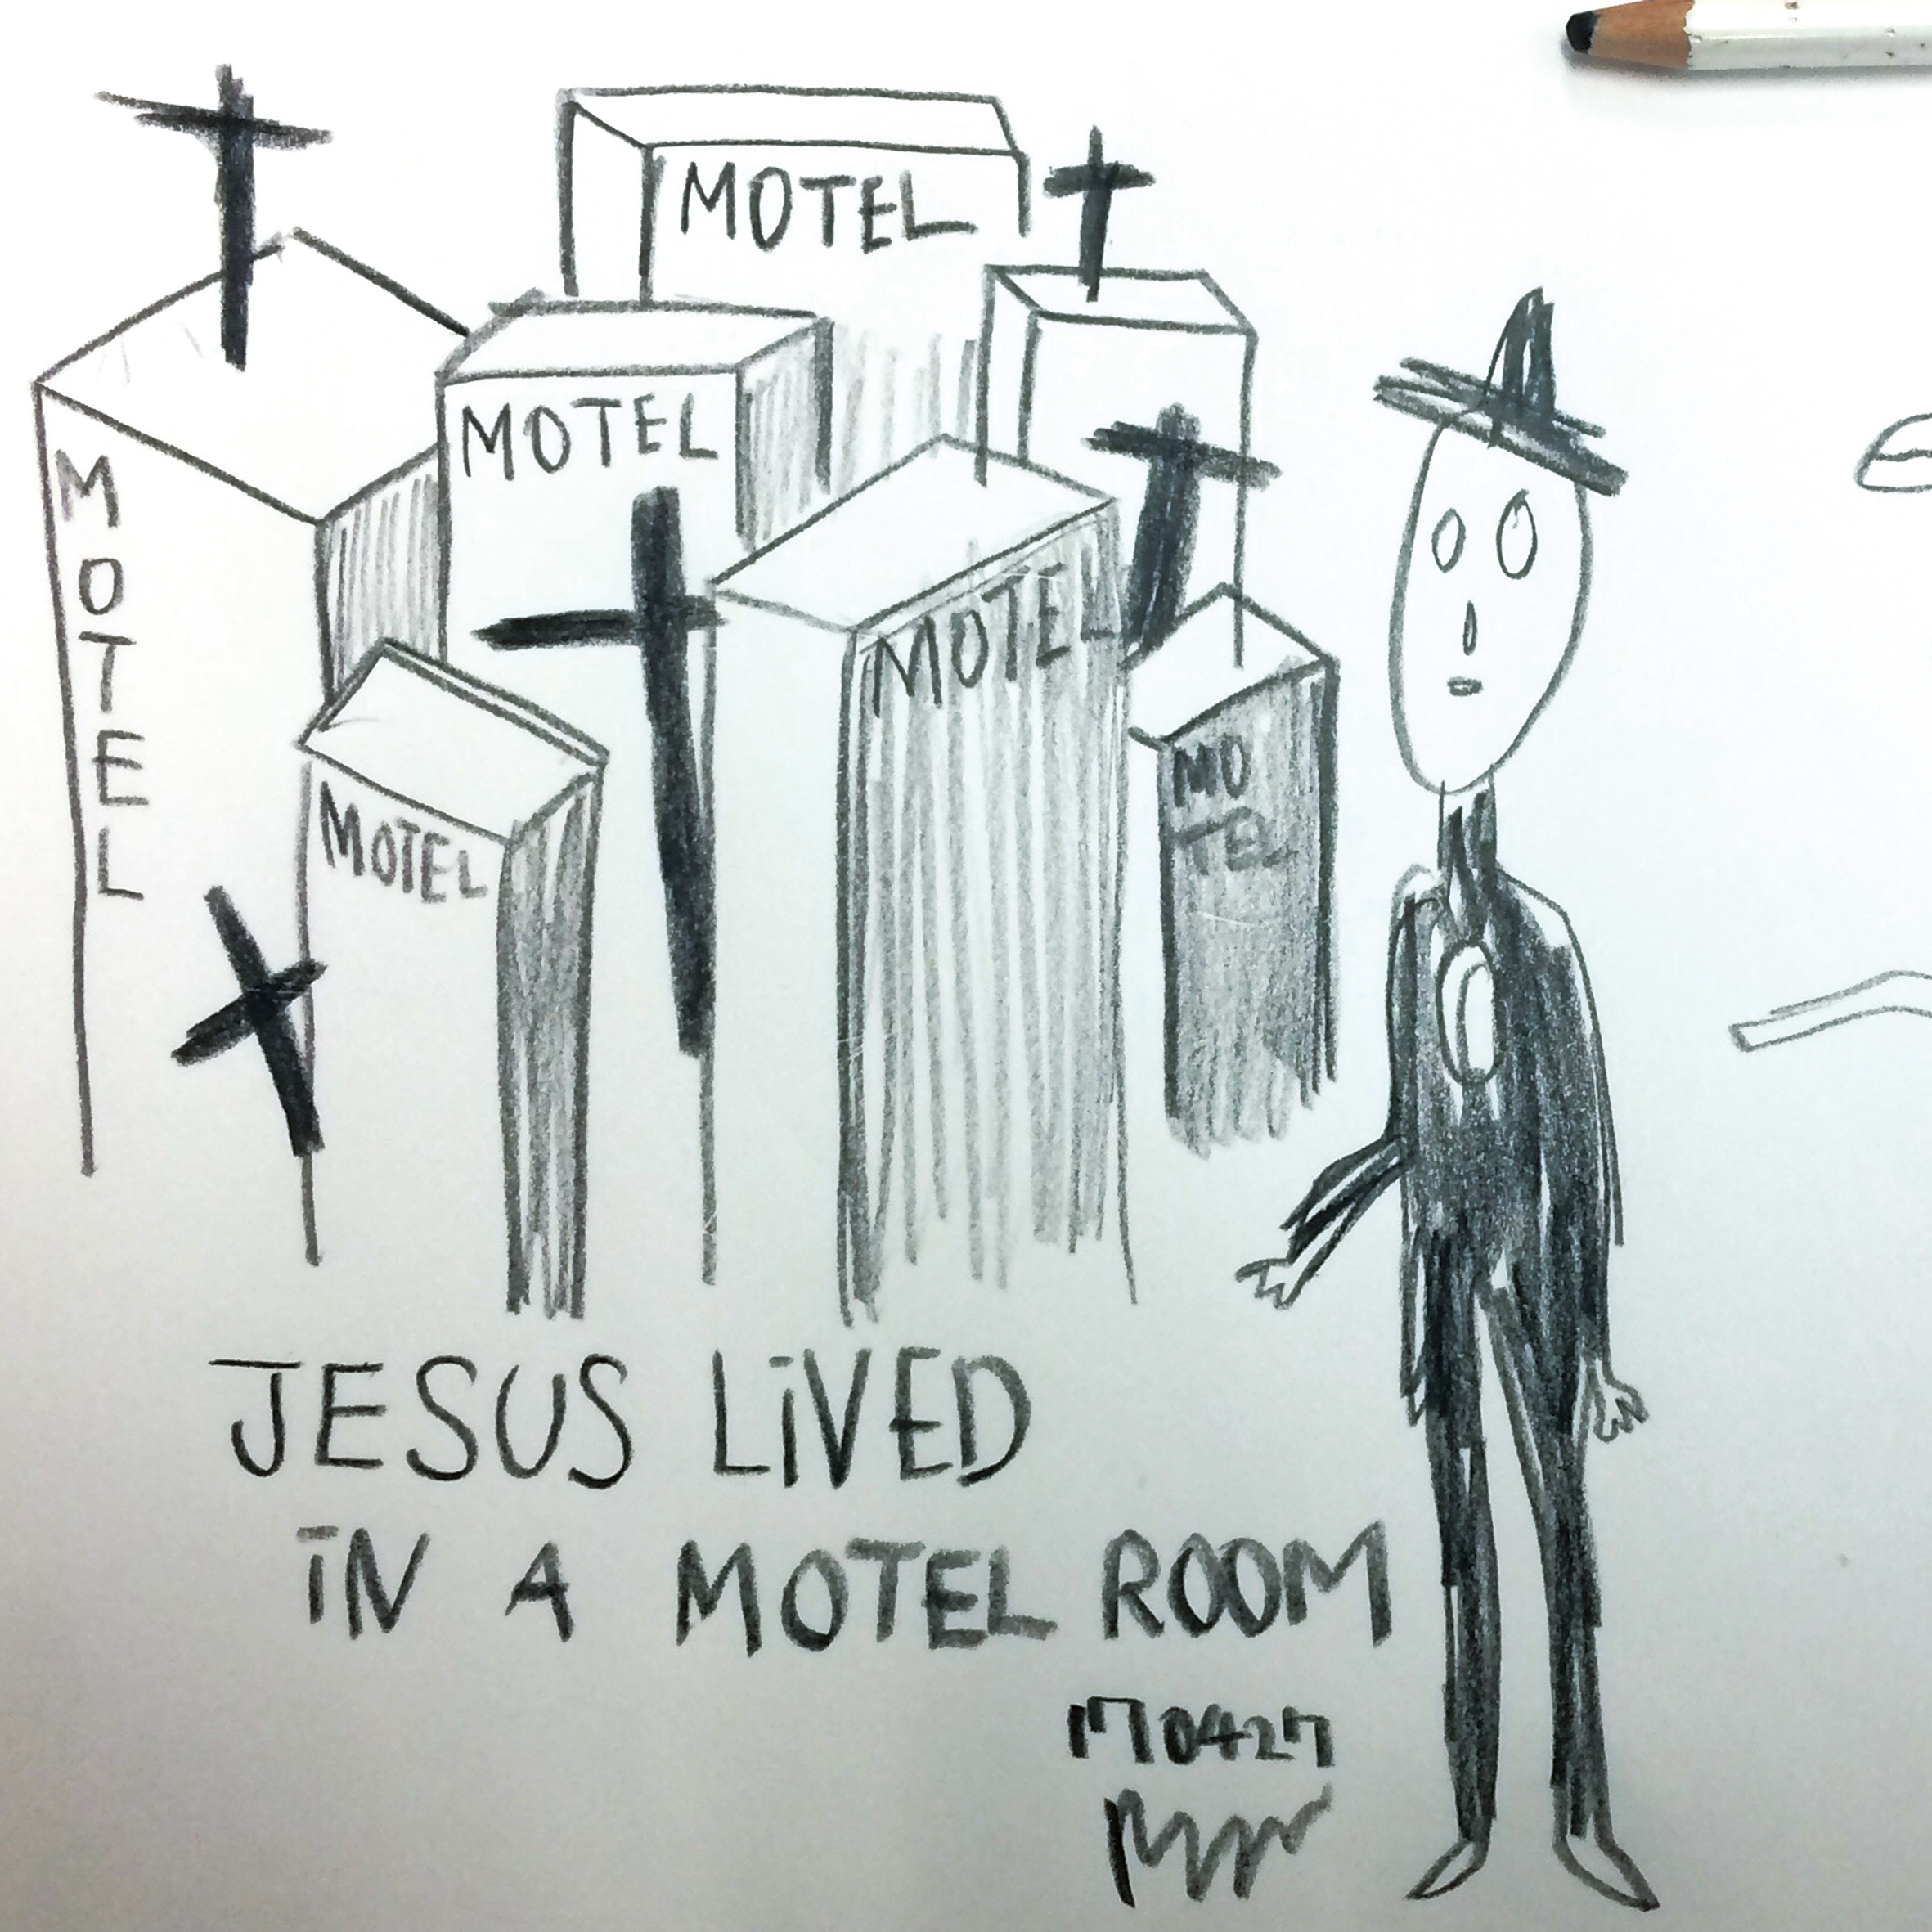 MOTEL
MOTEL
MOTEL
MOTEL
MOTEL
MO
TEL
JESUS LiVED
iN A MOTEL ROOM
170427